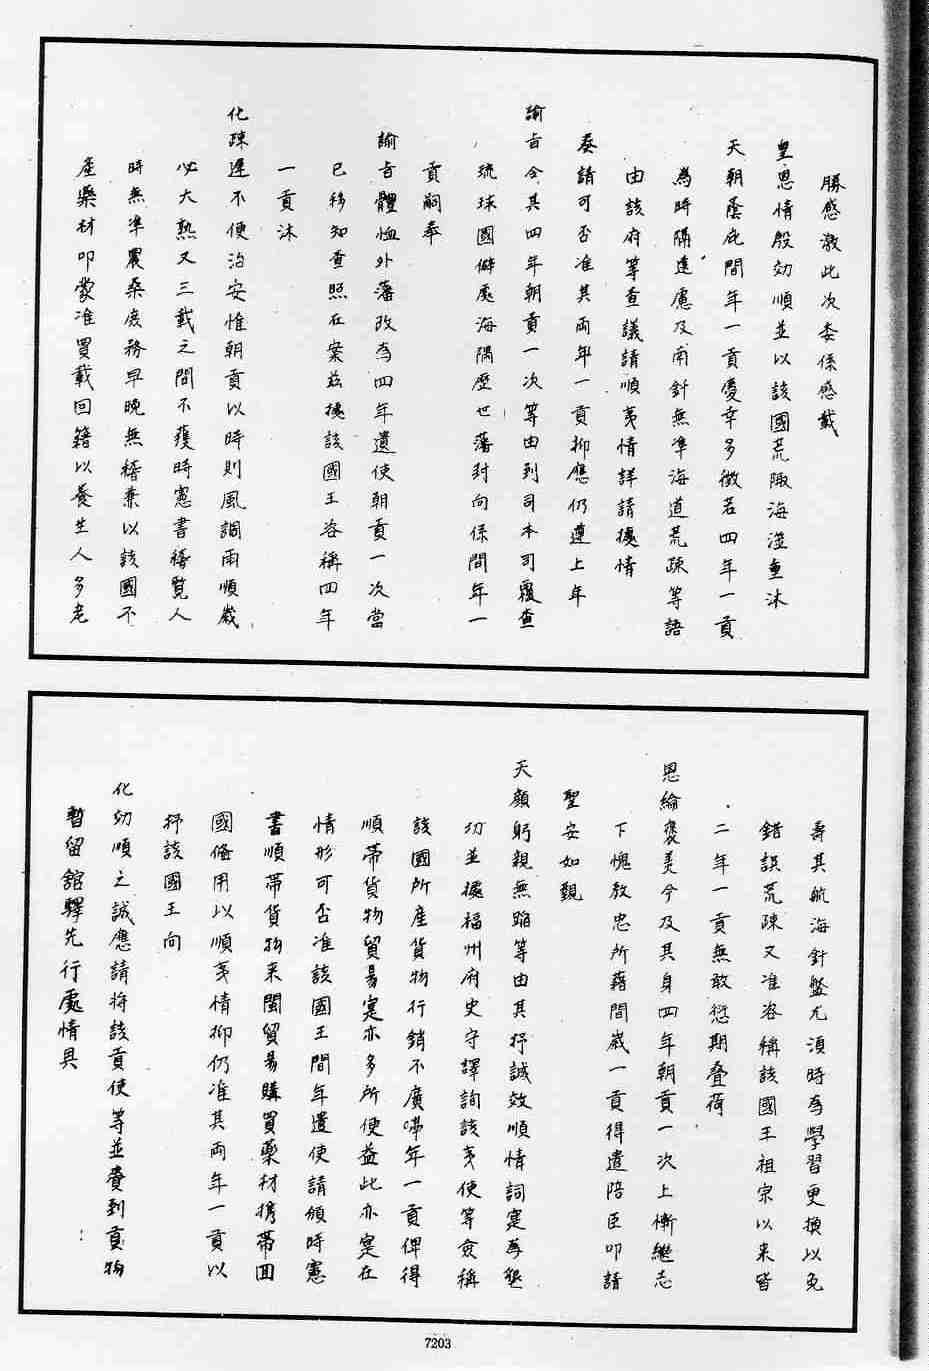 勝感激此次委係感戴
皇恩情殷効順並以該國荒陬海澨重沐
天朝蔭庇間年一貢憂幸多徵若四年一貢
為時隔遠慮及南針無準海道荒疎等語
由該府等查議請順夷情詳請據情
奏請可否准其両年一貢抑應仍遵上年
諭旨令其四年朝貢一次等由到司本司覆查
琉球國僻處海隅歷世藩封向係間年一
貢嗣奉
諭旨體恤外藩改為四年遣使朝貢一次當
已移知查照在案茲據該國王咨稱四年
一貢沐
化疎遠不便治安惟朝貢以時則風調雨順歲
必大熟又三載之間不獲時憲書稽覽人
時無準農桑庶務早晩無稽兼以該國不
產藥材叩蒙准買載回籍以養生人多老
壽其航海針盤尤須時為學習更換以免
錯誤荒疎又准咨稱該國王祖宗以来皆
二年一貢無敢愆期叠荷
恩綸褒美今及其身四年朝貢一次上慚繼志
下愧教忠所藉間歲一貢得遣陪臣叩請
聖安如覲
天顔躬親無踰等由其抒誠效順情詞寔為懇
切並據福州府史守譯詢該夷使等僉稱
該國所產貨物行銷不廣 年一貢俾得
順帶貨物貿易寔亦多所使益此亦寔在
情形可否准該國王間年遣使請頒時憲
書順帶貨物来閩貿易購買藥材携帶回
國俻用以順夷情抑仍准其両年一貢以
抒該國王向
化効順之誠應請將該貢使等並賫到貢物
暫留舘驛先行處情具
7203